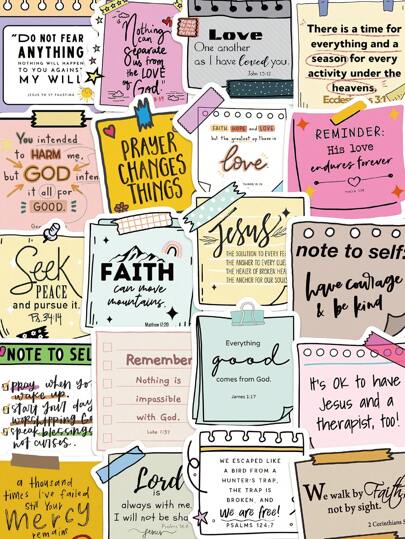 "DO NOT FEAR
ANYTHING
NOTHING WILL HAPPEN
TO YOU AGAINST
MY WILL"
JESUS TO ST FAUSTINA
Nothing
can
Separate
us from
the LOVE
of
God."
Love
One another
as I have loved you.
John 13:12
There is a time for
everything and a
season for every
activity under the
heavens.
Eccles 3:1
You intended
to HARM me,
but GOD inten
it all for
GOOD.
PRAYER
CHANGES
THINGS
FAITH HOPE and LOVE
but the greatest of these is
love
REMINDER:
His love
endures forever
Seek
PEACE
and pursue it.
Ps. 34:14
FAITH
can move
mountains.
Matthew 17:20
Jesus
THE SOLUTION TO EVERY
THE ANSWER TO EVERY
THE HEALER OF BROKEN
THE ANCHOR FOR OUR SOULS
note to self:
have courage
& be kind
NOTE TO SEL
pray when yo
wake up.
start your day
worshipping
speak blessings
not curses.
Remember
Nothing is
impossible
with God.
Luke 1:37
Everything
good
comes from God.
James 1:17
It's OK to have
Jesus and a
therapist, too!
a thousand
times I've failed
still Your
Mercy
remains
Lord
is
always with me,
I will not be sha
WE ESCAPED LIKE
A BIRD FROM A
HUNTER'S TRAP,
THE TRAP IS
BROKEN, AND
we are free!
PSALMS 124:7
We walk by Faith,
not by sight.
2 Corinthians 5